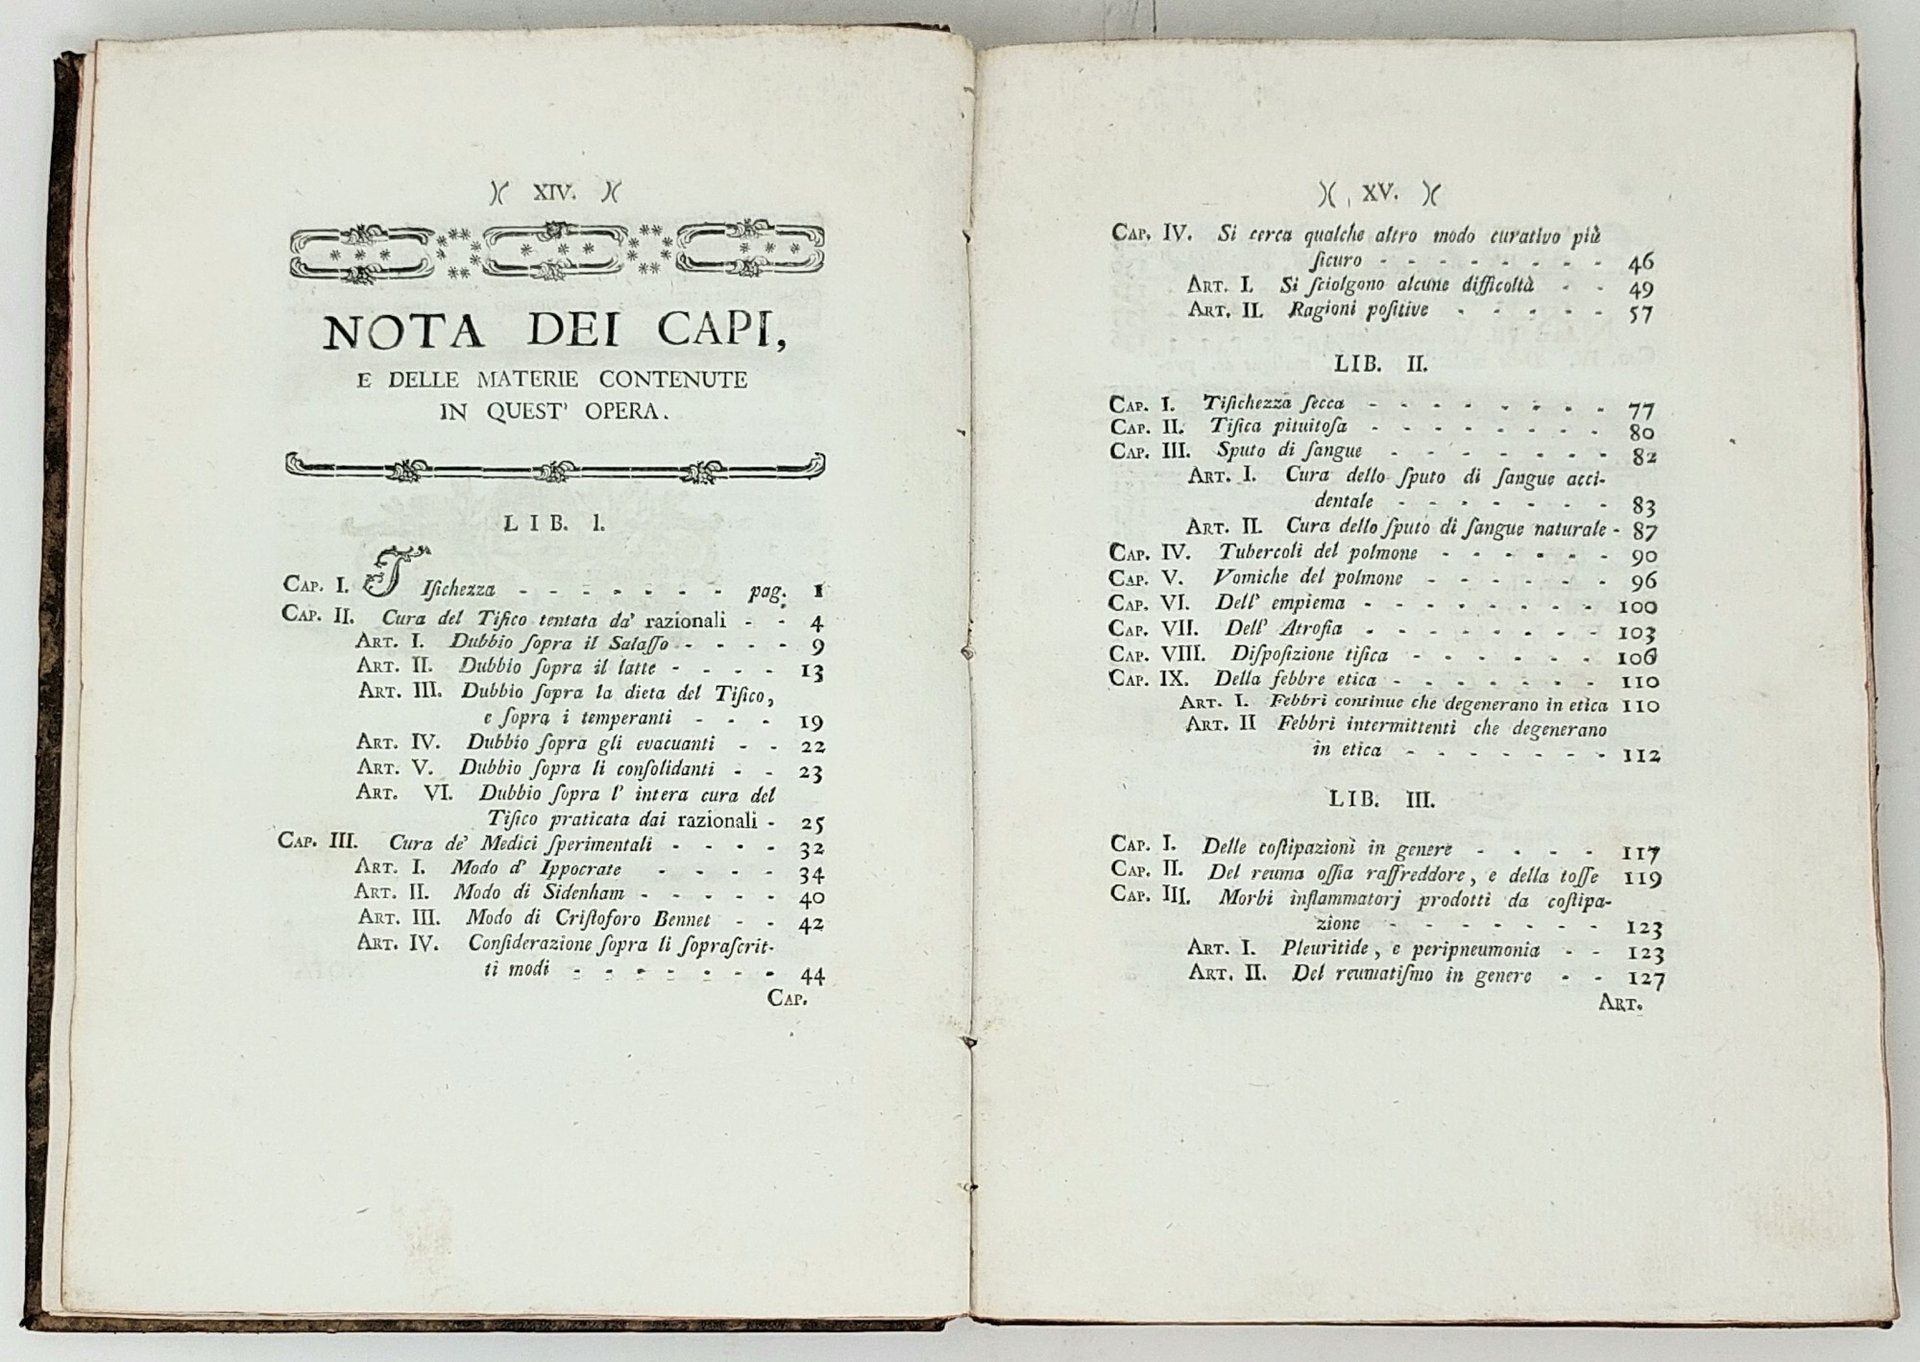 )( XIV. )(
NOTA DEI CAPI,
E DELLE MATERIE CONTENUTE
IN QUEST' OPERA.
LIB. I.
CAP. I. Tiſichezza - - - - - - - pag. 1
CAP. II. Cura del Tiſico tentata da' razionali - - 4
ART. I. Dubbio ſopra il Salaſſo - - - - 9
ART. II. Dubbio ſopra il latte - - - - 13
ART. III. Dubbio ſopra la dieta del Tiſico,
e ſopra i temperanti - - - 19
ART. IV. Dubbio ſopra gli evacuanti - - 22
ART. V. Dubbio ſopra li conſolidanti - - 23
ART. VI. Dubbio ſopra l' intera cura del
Tiſico praticata dai razionali - 25
CAP. III. Cura de' Medici ſperimentali - - - - 32
ART. I. Modo d' Ippocrate - - - - 34
ART. II. Modo di Sidenham - - - - - 40
ART. III. Modo di Criſtoforo Bennet - - 42
ART. IV. Conſiderazione ſopra li ſopraſcrit-
ti modi - - - - - - - 44
CAP.
)( XV. )(
CAP. IV. Si cerca qualche altro modo curativo più
ſicuro - - - - - - - - 46
ART. I. Si ſciolgono alcune difficoltà - - 49
ART. II. Ragioni poſitive - - - - - 57
LIB. II.
CAP. I. Tiſichezza ſecca - - - - - - - - 77
CAP. II. Tiſica pituitoſa - - - - - - - - 80
CAP. III. Sputo di ſangue - - - - - - - 82
ART. I. Cura dello ſputo di ſangue acci-
dentale - - - - - - - 83
ART. II. Cura dello ſputo di ſangue naturale - 87
CAP. IV. Tubercoli del polmone - - - - - - 90
CAP. V. Vomiche del polmone - - - - - - 96
CAP. VI. Dell' empiema - - - - - - - - 100
CAP. VII. Dell' Atrofia - - - - - - - - 103
CAP. VIII. Diſpoſizione tiſica - - - - - - 106
CAP. IX. Della febbre etica - - - - - - - 110
ART. I. Febbri continue che degenerano in etica 110
ART. II Febbri intermittenti che degenerano
in etica - - - - - - - 112
LIB. III.
CAP. I. Delle coſtipazioni in genere - - - - 117
CAP. II. Del reuma oſſia raffreddore, e della toſſe 119
CAP. III. Morbi inflammatorj prodotti da coſtipa-
zione - - - - - - - 123
ART. I. Pleuritide, e peripneumonia - - 123
ART. II. Del reumatiſmo in genere - - 127
ART.